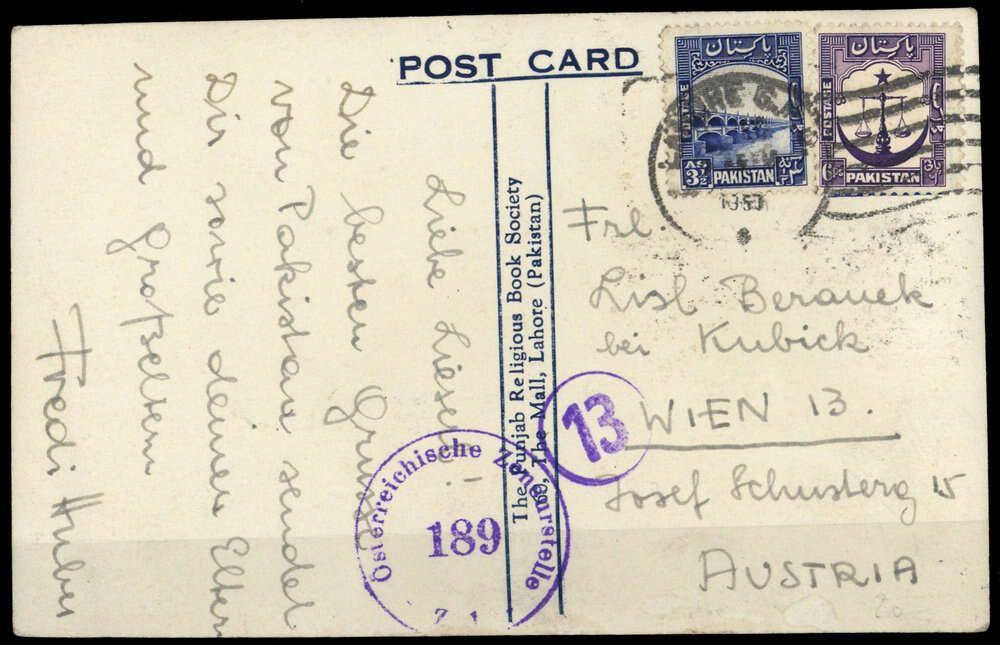 POST CARD
Liebe Lieserl!
Die besten Grüße
von Pakistan sendet
Dir sowie deinen Eltern
und Großeltern
Fredi Huber
The Punjab Religious Book Society
60, The Mall, Lahore (Pakistan)
پاکستان
POSTAGE
AS 3½
PAKISTAN
پاکستان
POSTAGE
6PS
PAKISTAN
LAHORE G.
Frl.
Lisl Beranek
bei Kubick
WIEN 13.
Josef Schusterg 15
AUSTRIA
20
13
Österreichische Zensurstelle
189